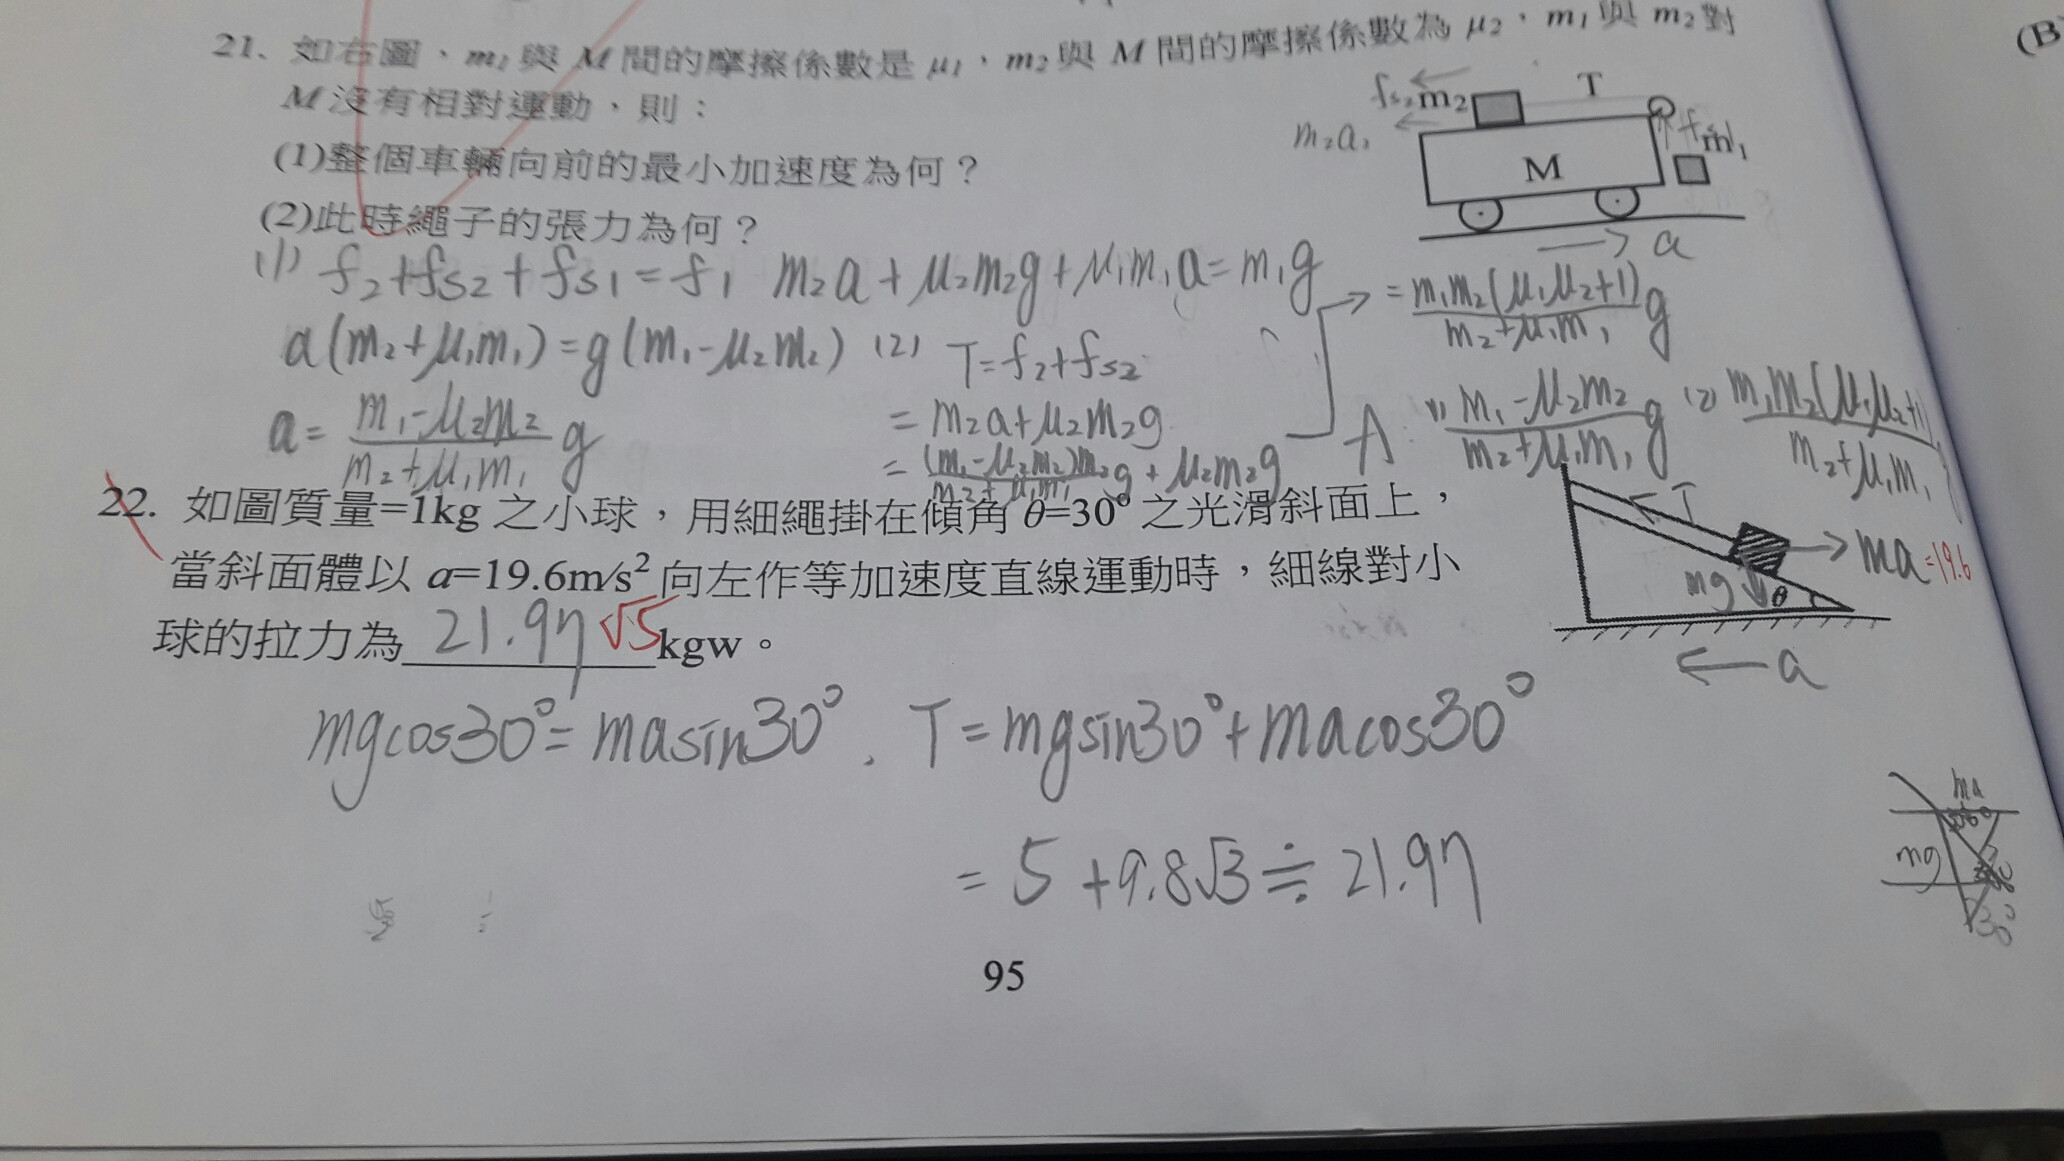 21. 如右圖、m1 與 M 間的摩擦係數是 μ1,m2 與 M 間的摩擦係數為 μ2,m1 與 m2 對
M 沒有相對運動、則:
(1)整個車輛向前的最小加速度為何?
(2)此時繩子的張力為何?
fs2 m2 T
m2a
M
m1
→ a
(1) f2+fs2+fs1=f1 m2a+μ2m2g+μ1m1a=m1g
a(m2+μ1m1)=g(m1-μ2m2) (2) T=f2+fs2
a= m1-μ2m2/m2+μ1m1 g
= m2a+μ2m2g
= (m1-μ2m2)m2/m2+μ1m1 g+μ2m2g
= m1m2(μ1μ2+1)/m2+μ1m1 g
A: (1) m1-μ2m2/m2+μ1m1 g (2) m1m2(μ1μ2+1)/m2+μ1m1
22. 如圖質量=1kg 之小球,用細繩掛在傾角 θ=30° 之光滑斜面上,
當斜面體以 a=19.6m/s² 向左作等加速度直線運動時,細線對小
球的拉力為 21.97 √5 kgw。
T
ma =19.6
mg θ
← a
mgcos30°=masin30°. T=mgsin30°+macos30°
= 5+9.8√3≒21.97
ma
mg
30°
95
(B